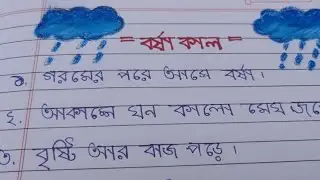 = বর্ষা কাল =
১. গরমের পরে আসে বর্ষা।
২. আকাশে ঘন কালো মেঘ
৩. বৃষ্টি আর বাজ পড়ে।